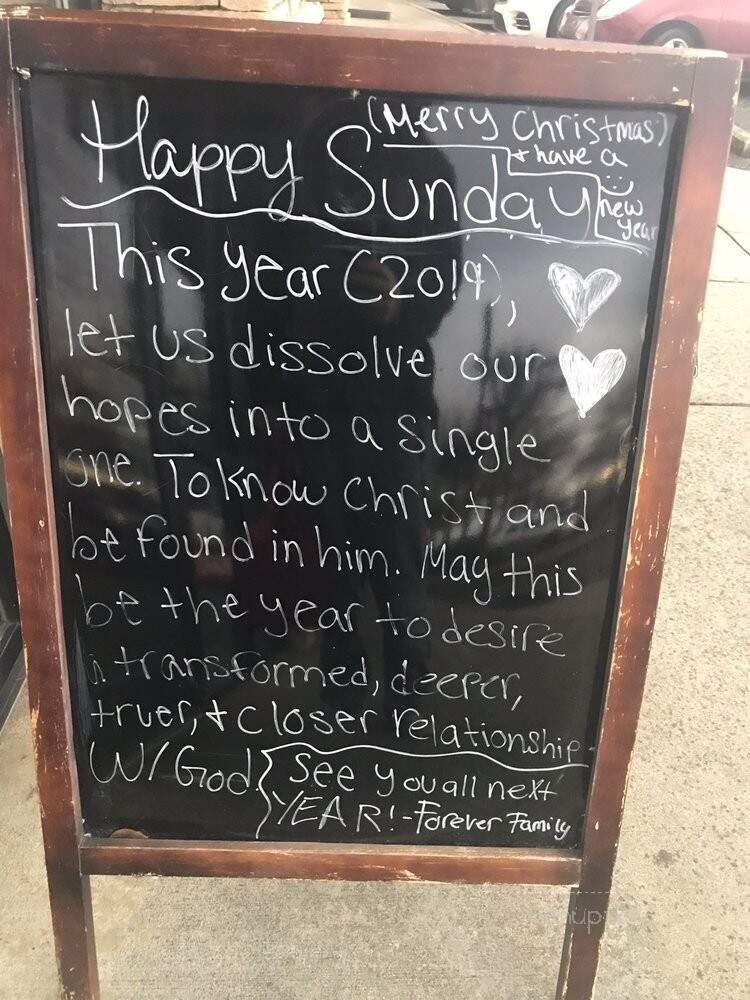 (Merry Christmas)
+ have a
new
year
Happy Sunday
This year (2019),
let us dissolve our
hopes into a single
one. To know Christ and
be found in him. May this
be the year to desire
a transformed, deeper,
truer, + closer relationship
W/God.
See you all next
YEAR! -Forever Family